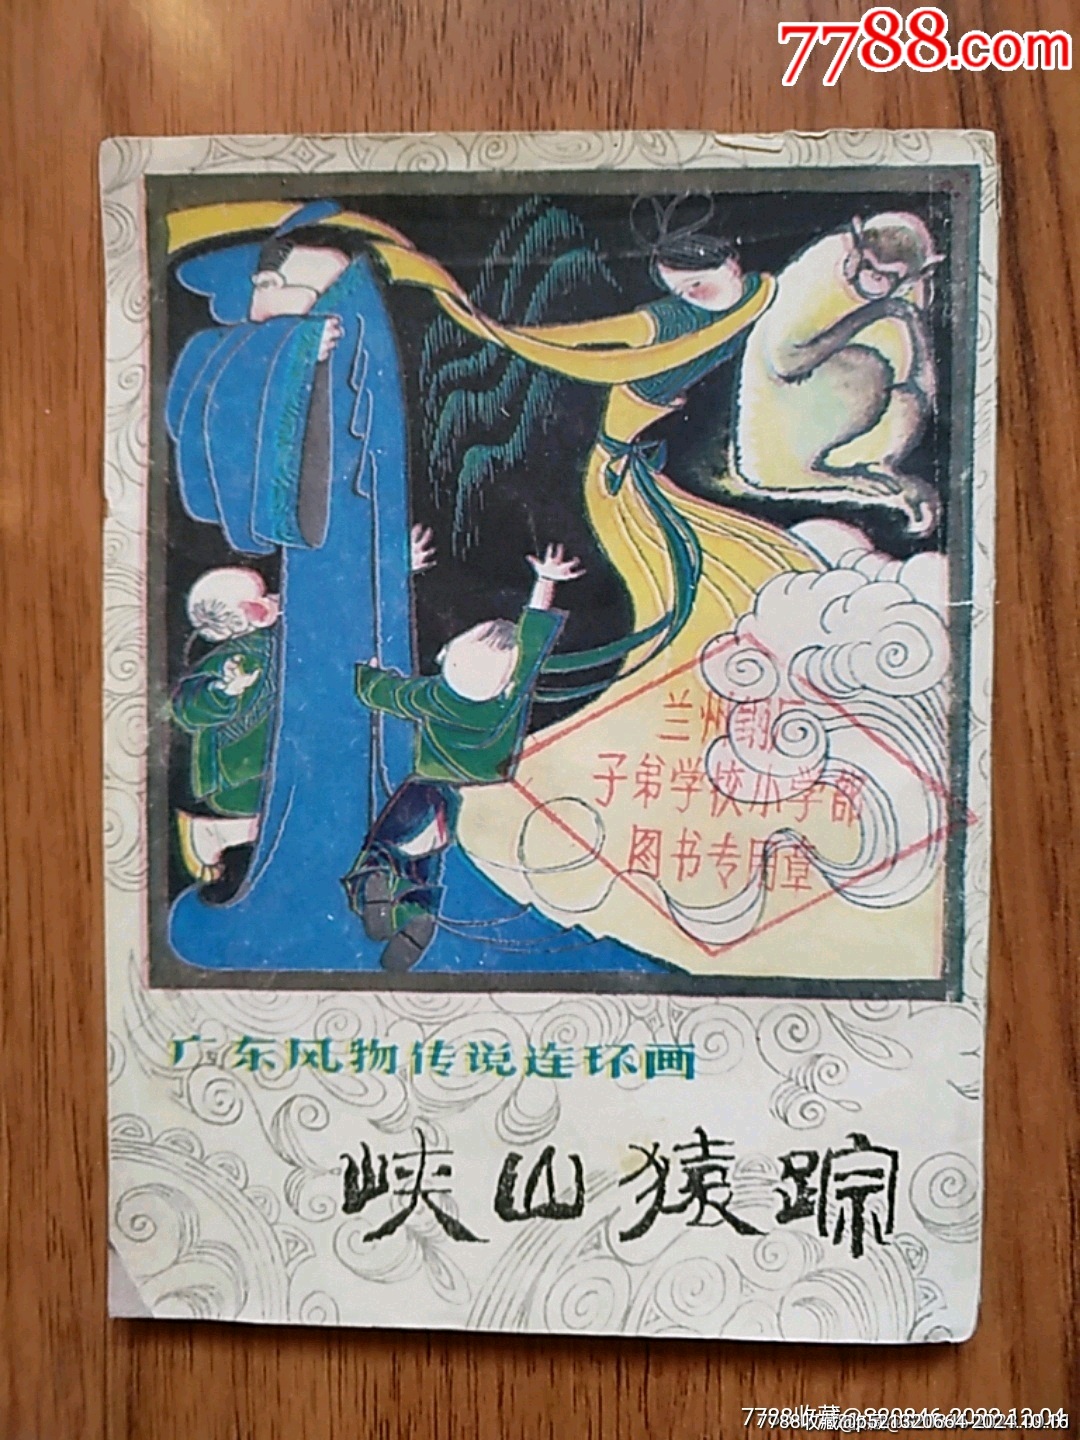 7788.com
兰州钢厂
子弟学校小学部
图书专用章
广东风物传说连环画
峡山猿踪